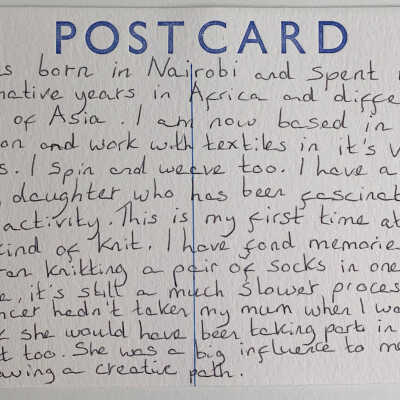 POSTCARD
s born in Nairobi and spent
mative years in Africa and diffe
of Asia. I am now based in
on and work with textiles in it's v
s. I spin and weave too. I have a
daughter who has been fascinat
activity. This is my first time at
kind of knit. I have fond memorie
ran knitting a pair of socks in one
e, it's still a much slower proces
ncer hadn't taken my mum when I wa
she would have been taking part in
t too. She was a big influence to me
aving a creative path.